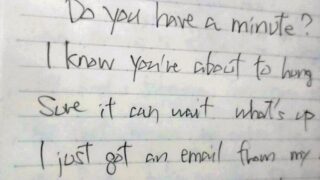 Do you have a minute?
I know you're about to hang
Sure it can wait what's up
I just got an email from my